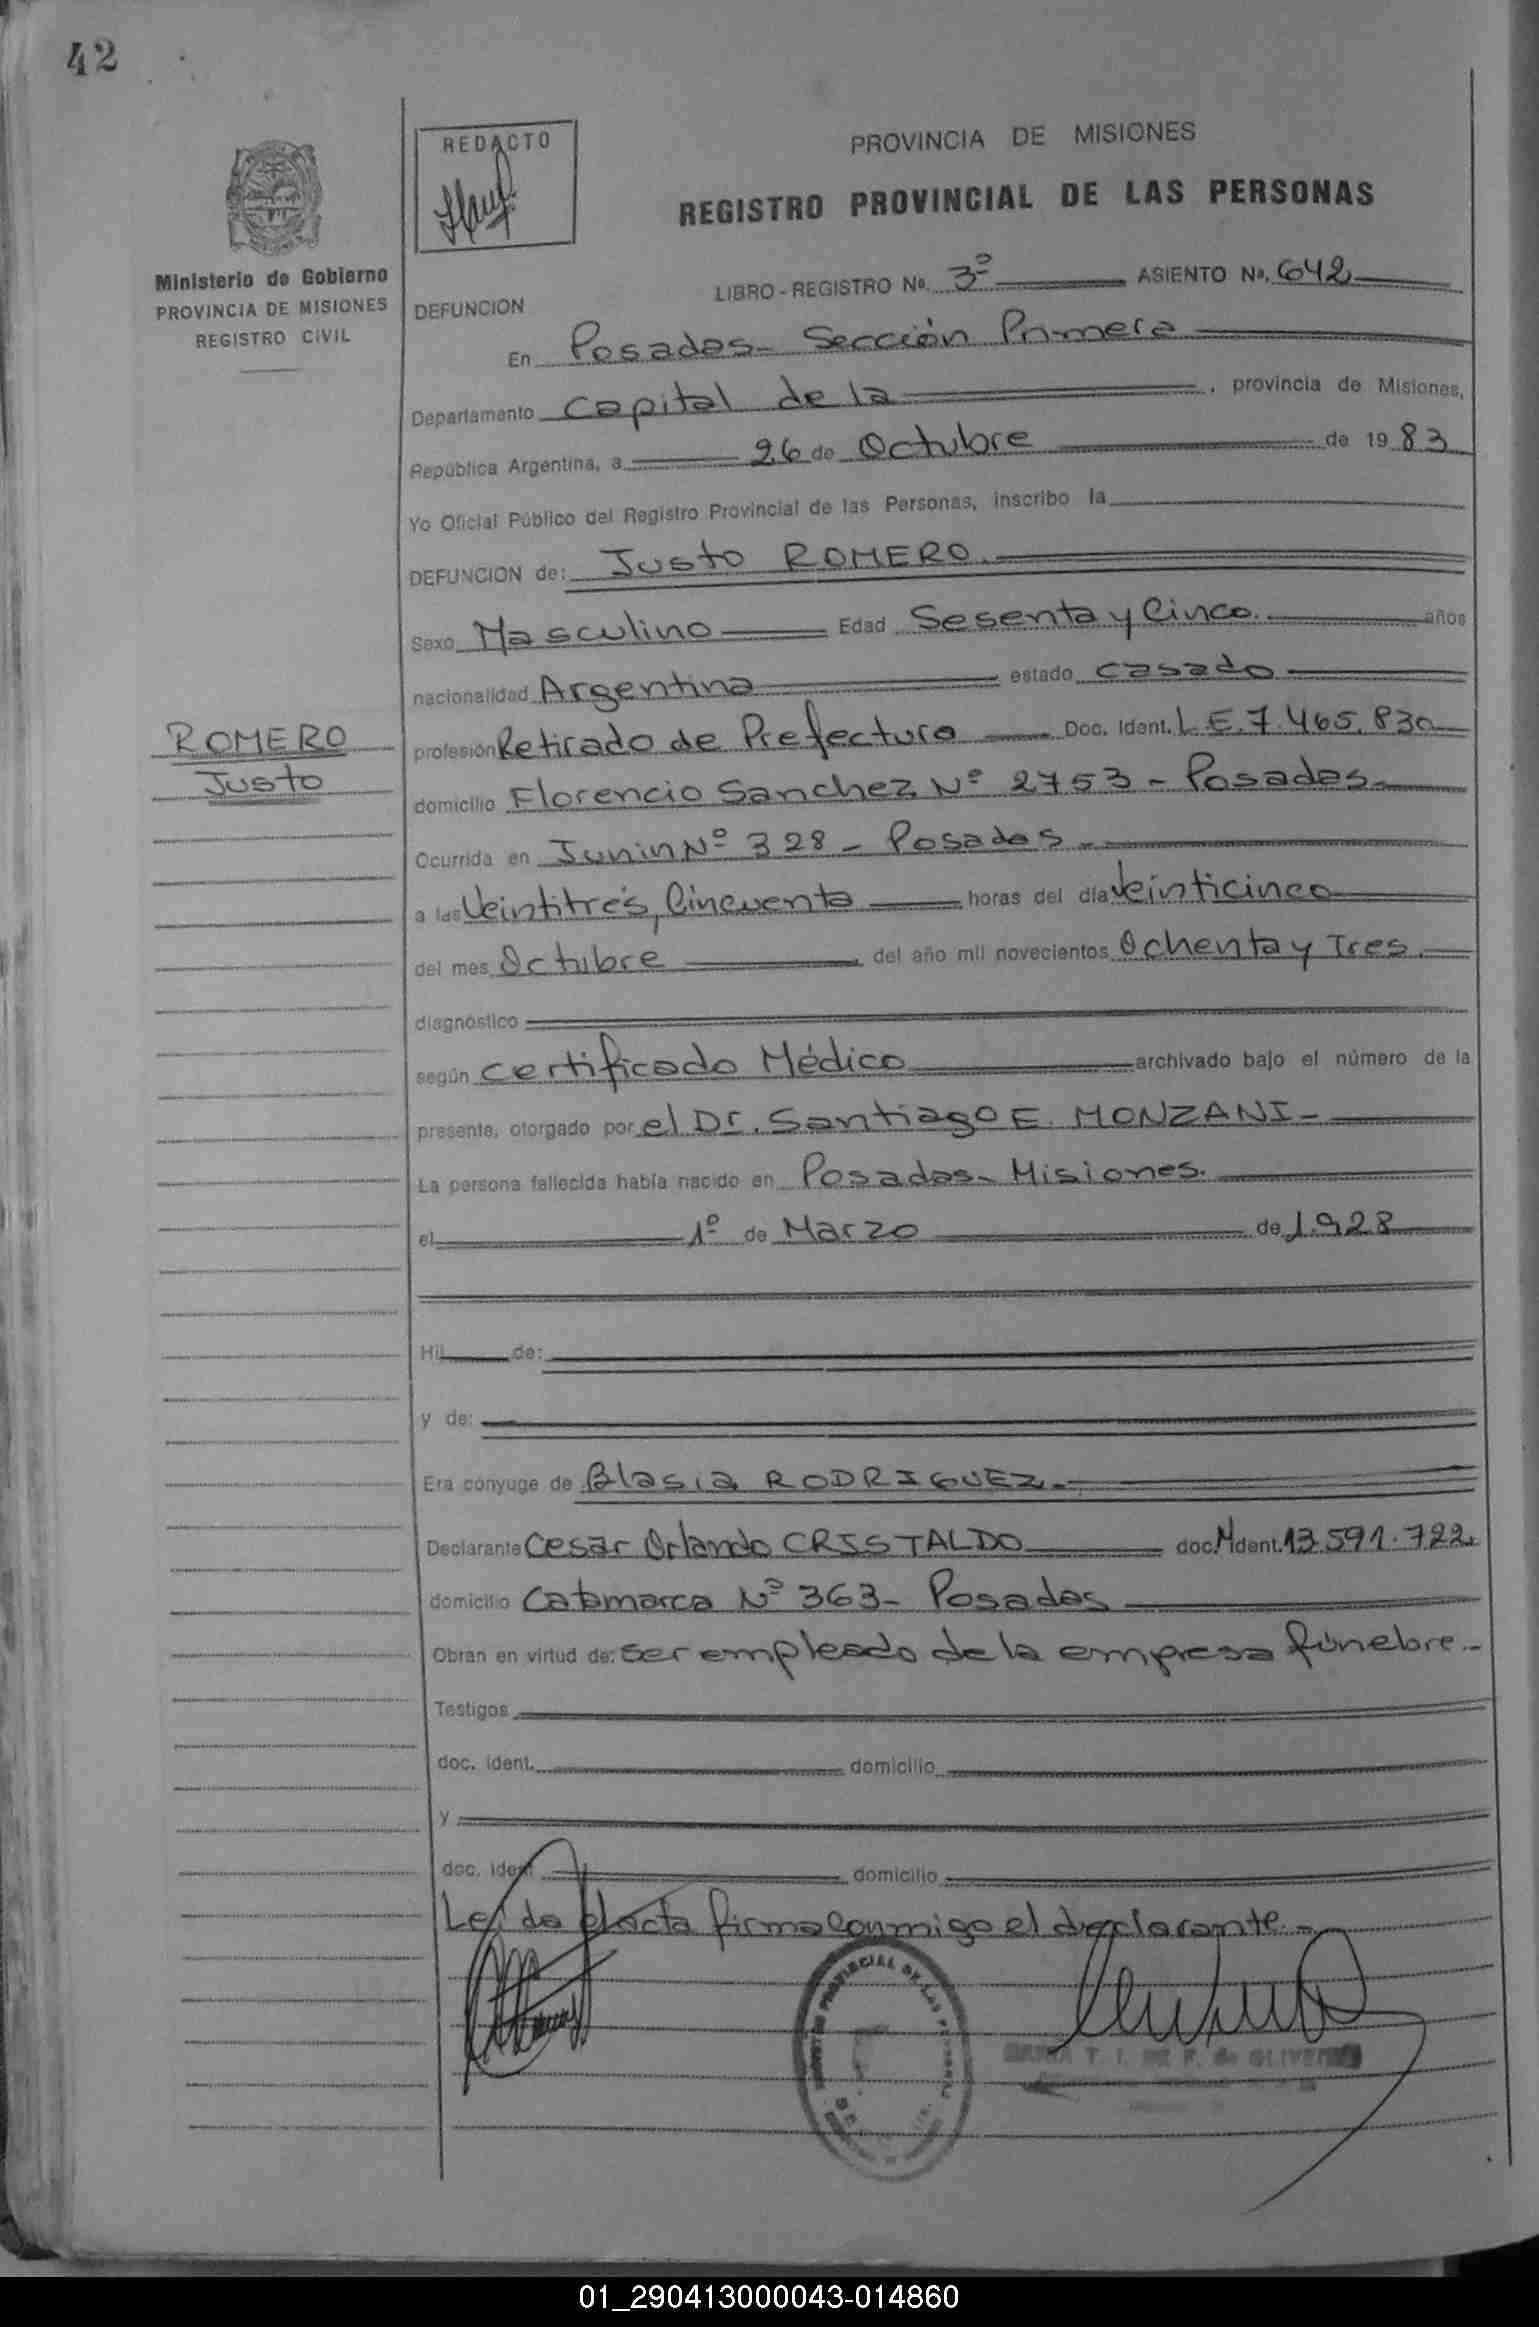 42
REDACTO
PROVINCIA DE MISIONES
REGISTRO PROVINCIAL DE LAS PERSONAS
Ministerio de Gobierno
PROVINCIA DE MISIONES
REGISTRO CIVIL
LIBRO - REGISTRO Nº. 3º ASIENTO Nº. 642
DEFUNCION
En Posadas - Sección Primera
Departamento Capital de la, provincia de Misiones,
República Argentina, a 26 de Octubre de 1983
Yo Oficial Público del Registro Provincial de las Personas, inscribo la
DEFUNCION de: Justo ROMERO.
Sexo Masculino Edad Sesenta y Cinco. años
nacionalidad Argentina estado casado
ROMERO
Justo
profesión Retirado de Prefectura Doc. Ident. L.E. 7.465.830
domicilio Florencio Sanchez Nº 2753 - Posadas.
Ocurrida en Junin Nº 328 - Posados.
a las Veintitrés, Cincuenta horas del día Veinticinco
del mes Octubre del año mil novecientos Ochenta y Tres.
diagnóstico
según Certificado Médico archivado bajo el número de la
presente, otorgado por el Dr. Santiago E. MONZANI -
La persona fallecida había nacido en Posadas - Misiones.
el 1º de Marzo de 1.928
Hij de:
y de:
Era cónyuge de Blasia RODRIGUEZ.
Declarante Cesar Orlando CRISTALDO doc. M ident. 13.591.722
domicilio Catamarca Nº 363 - Posadas
Obran en virtud de: ser empleado de la empresa fúnebre. -
Testigos
doc. ident. domicilio
y
doc. ident. domicilio
Leída el acta firma conmigo el declarante. -
PROVINCIAL DE LAS
T. I. DE F. de OLIVEIRA
01_290413000043-014860